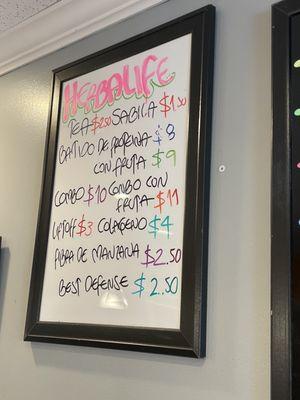 HERBALIFE
TEA $2.50 SABILA $1.50
BATIDO DE PROTEINA $8
CON FRUTA $9
COMBO $10 COMBO CON
FRUTA $11
LIFTOFF $3 COLAGENO $4
FIBRA DE MANZANA $2.50
BEST DEFENSE $2.50